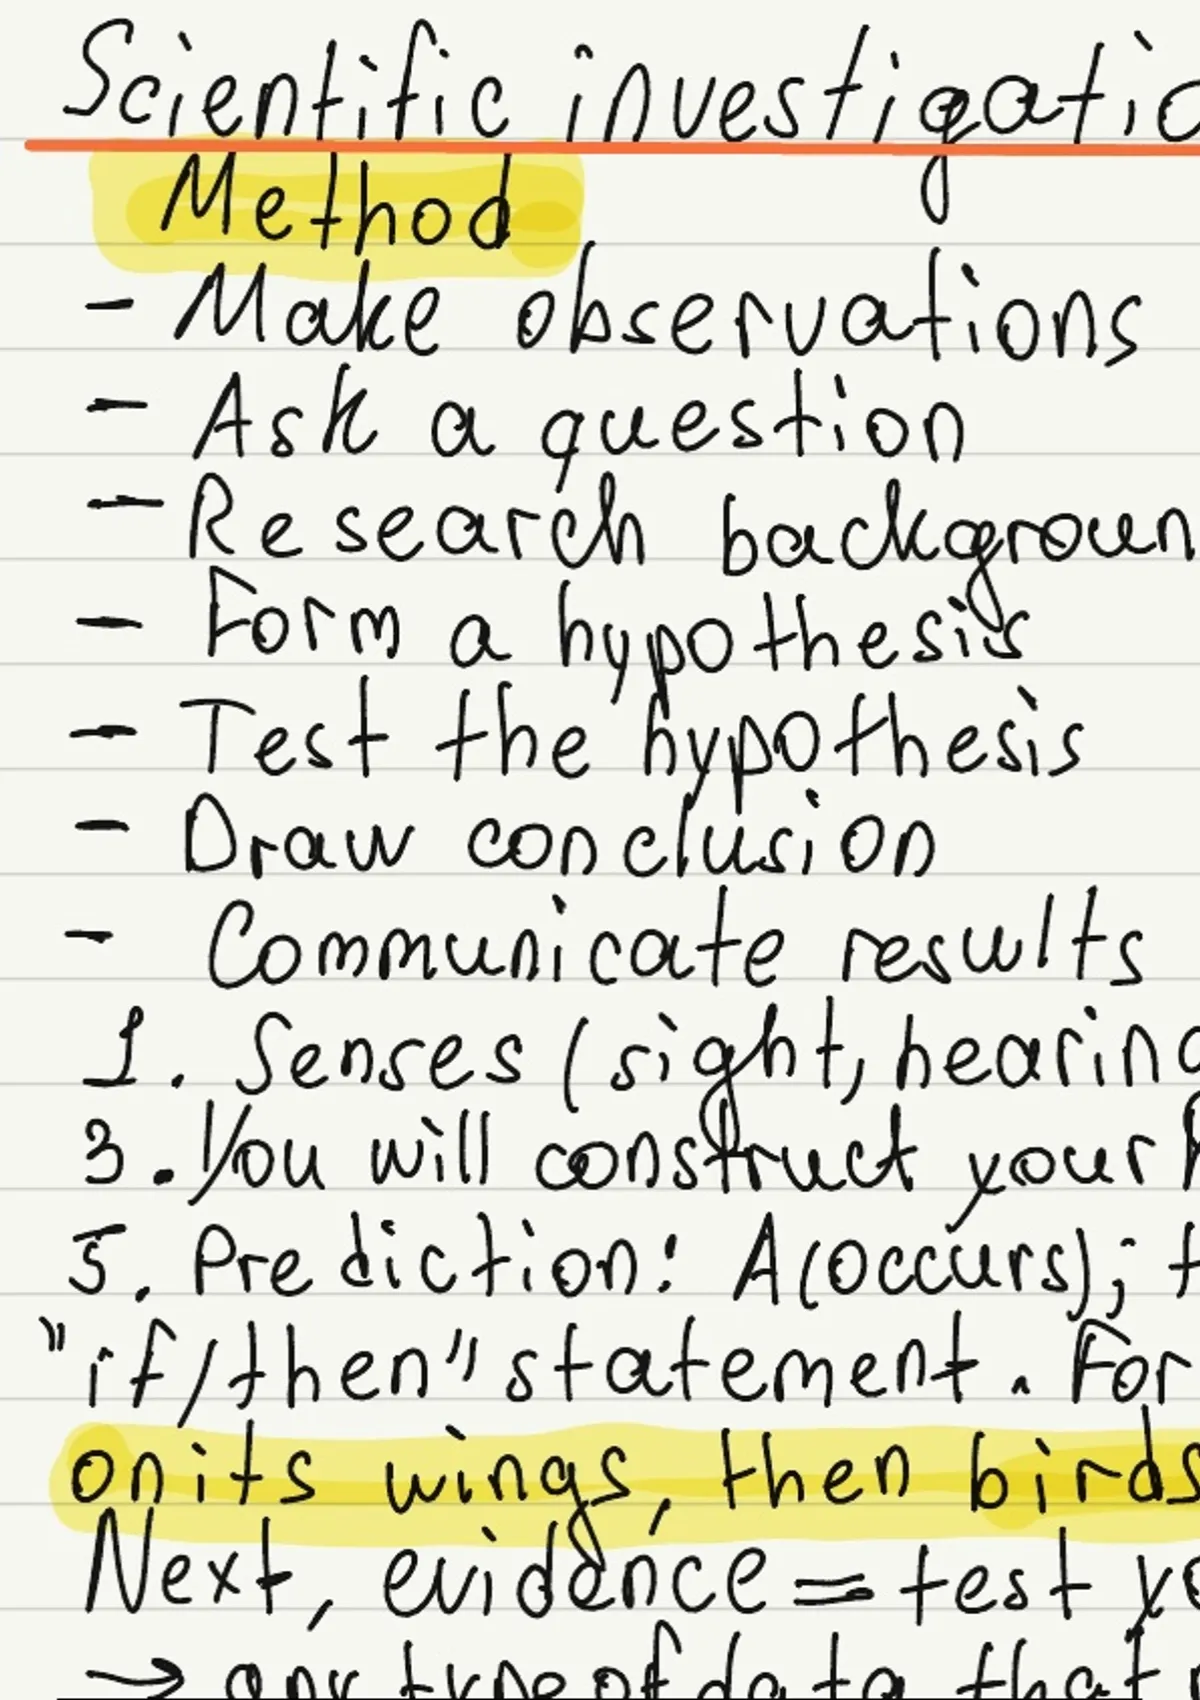 Scientific investigatio
Method
- Make observations
- Ask a question
- Research backgroun
- Form a hypothesis
- Test the hypothesis
- Draw conclusion
- Communicate results
1. Senses (sight, hearing
3. You will construct your h
5. Prediction: A(occurs); t
"if/then" statement. For
on its wings, then birds
Next, evidence = test yo
→ any type of data that